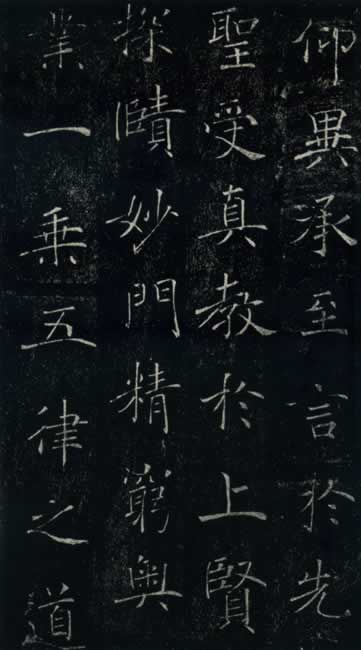 仰異承至言於先
聖受真教於上賢
探賾妙門精窮奥
業一乘五律之道